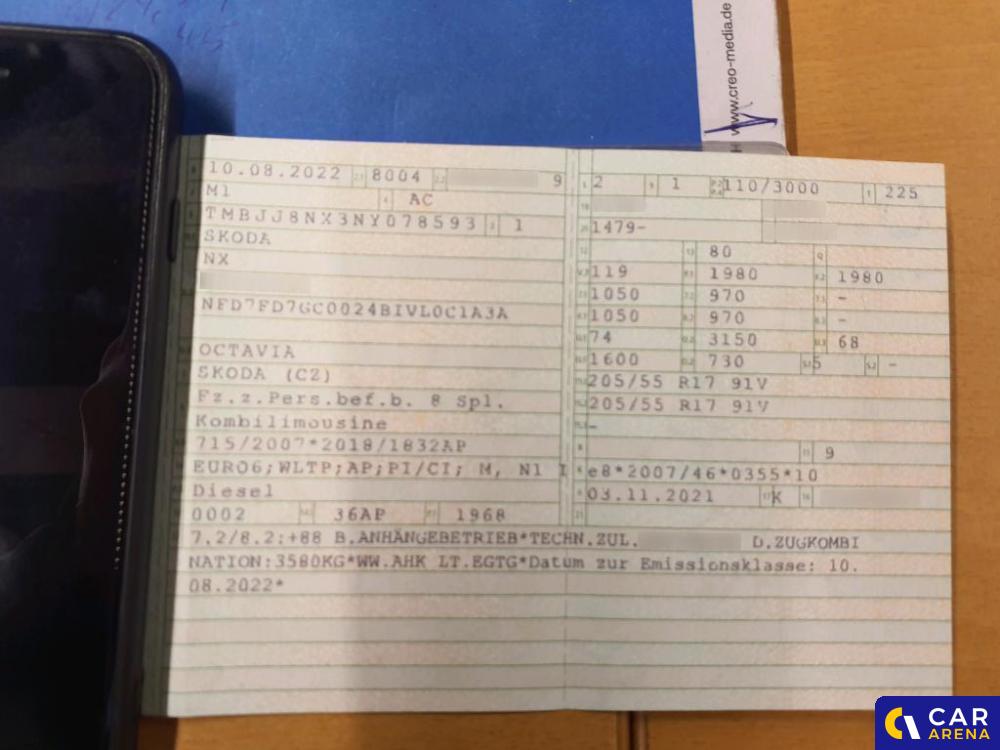 www.creo-media.de
10.08.2022 8004 9
M1 AC
TMBJJ8NX3NY078593 1
SKODA
NX
NFD7FD7GC0024BIVL0C1A3A
OCTAVIA
SKODA (CZ)
Fz.z.Pers.bef.b. 8 Spl.
Kombilimousine
715/2007*2018/1832AP
EURO6;WLTP;AP;PI/CI; M, N1 I
Diesel
0002 36AP 1968
2 1 110/3000 225
1479-
80
119 1980 1980
1050 970 -
1050 970 -
74 3150 68
1600 730 5 -
205/55 R17 91V
205/55 R17 91V
-
9
e8*2007/46*0355*10
03.11.2021 K
7.2/8.2:+88 B.ANHÄNGEBETRIEB*TECHN.ZUL. D.ZUGKOMBI
NATION:3580KG*WW.AHK LT.EGTG*Datum zur Emissionsklasse: 10.
08.2022*
CAR
ARENA